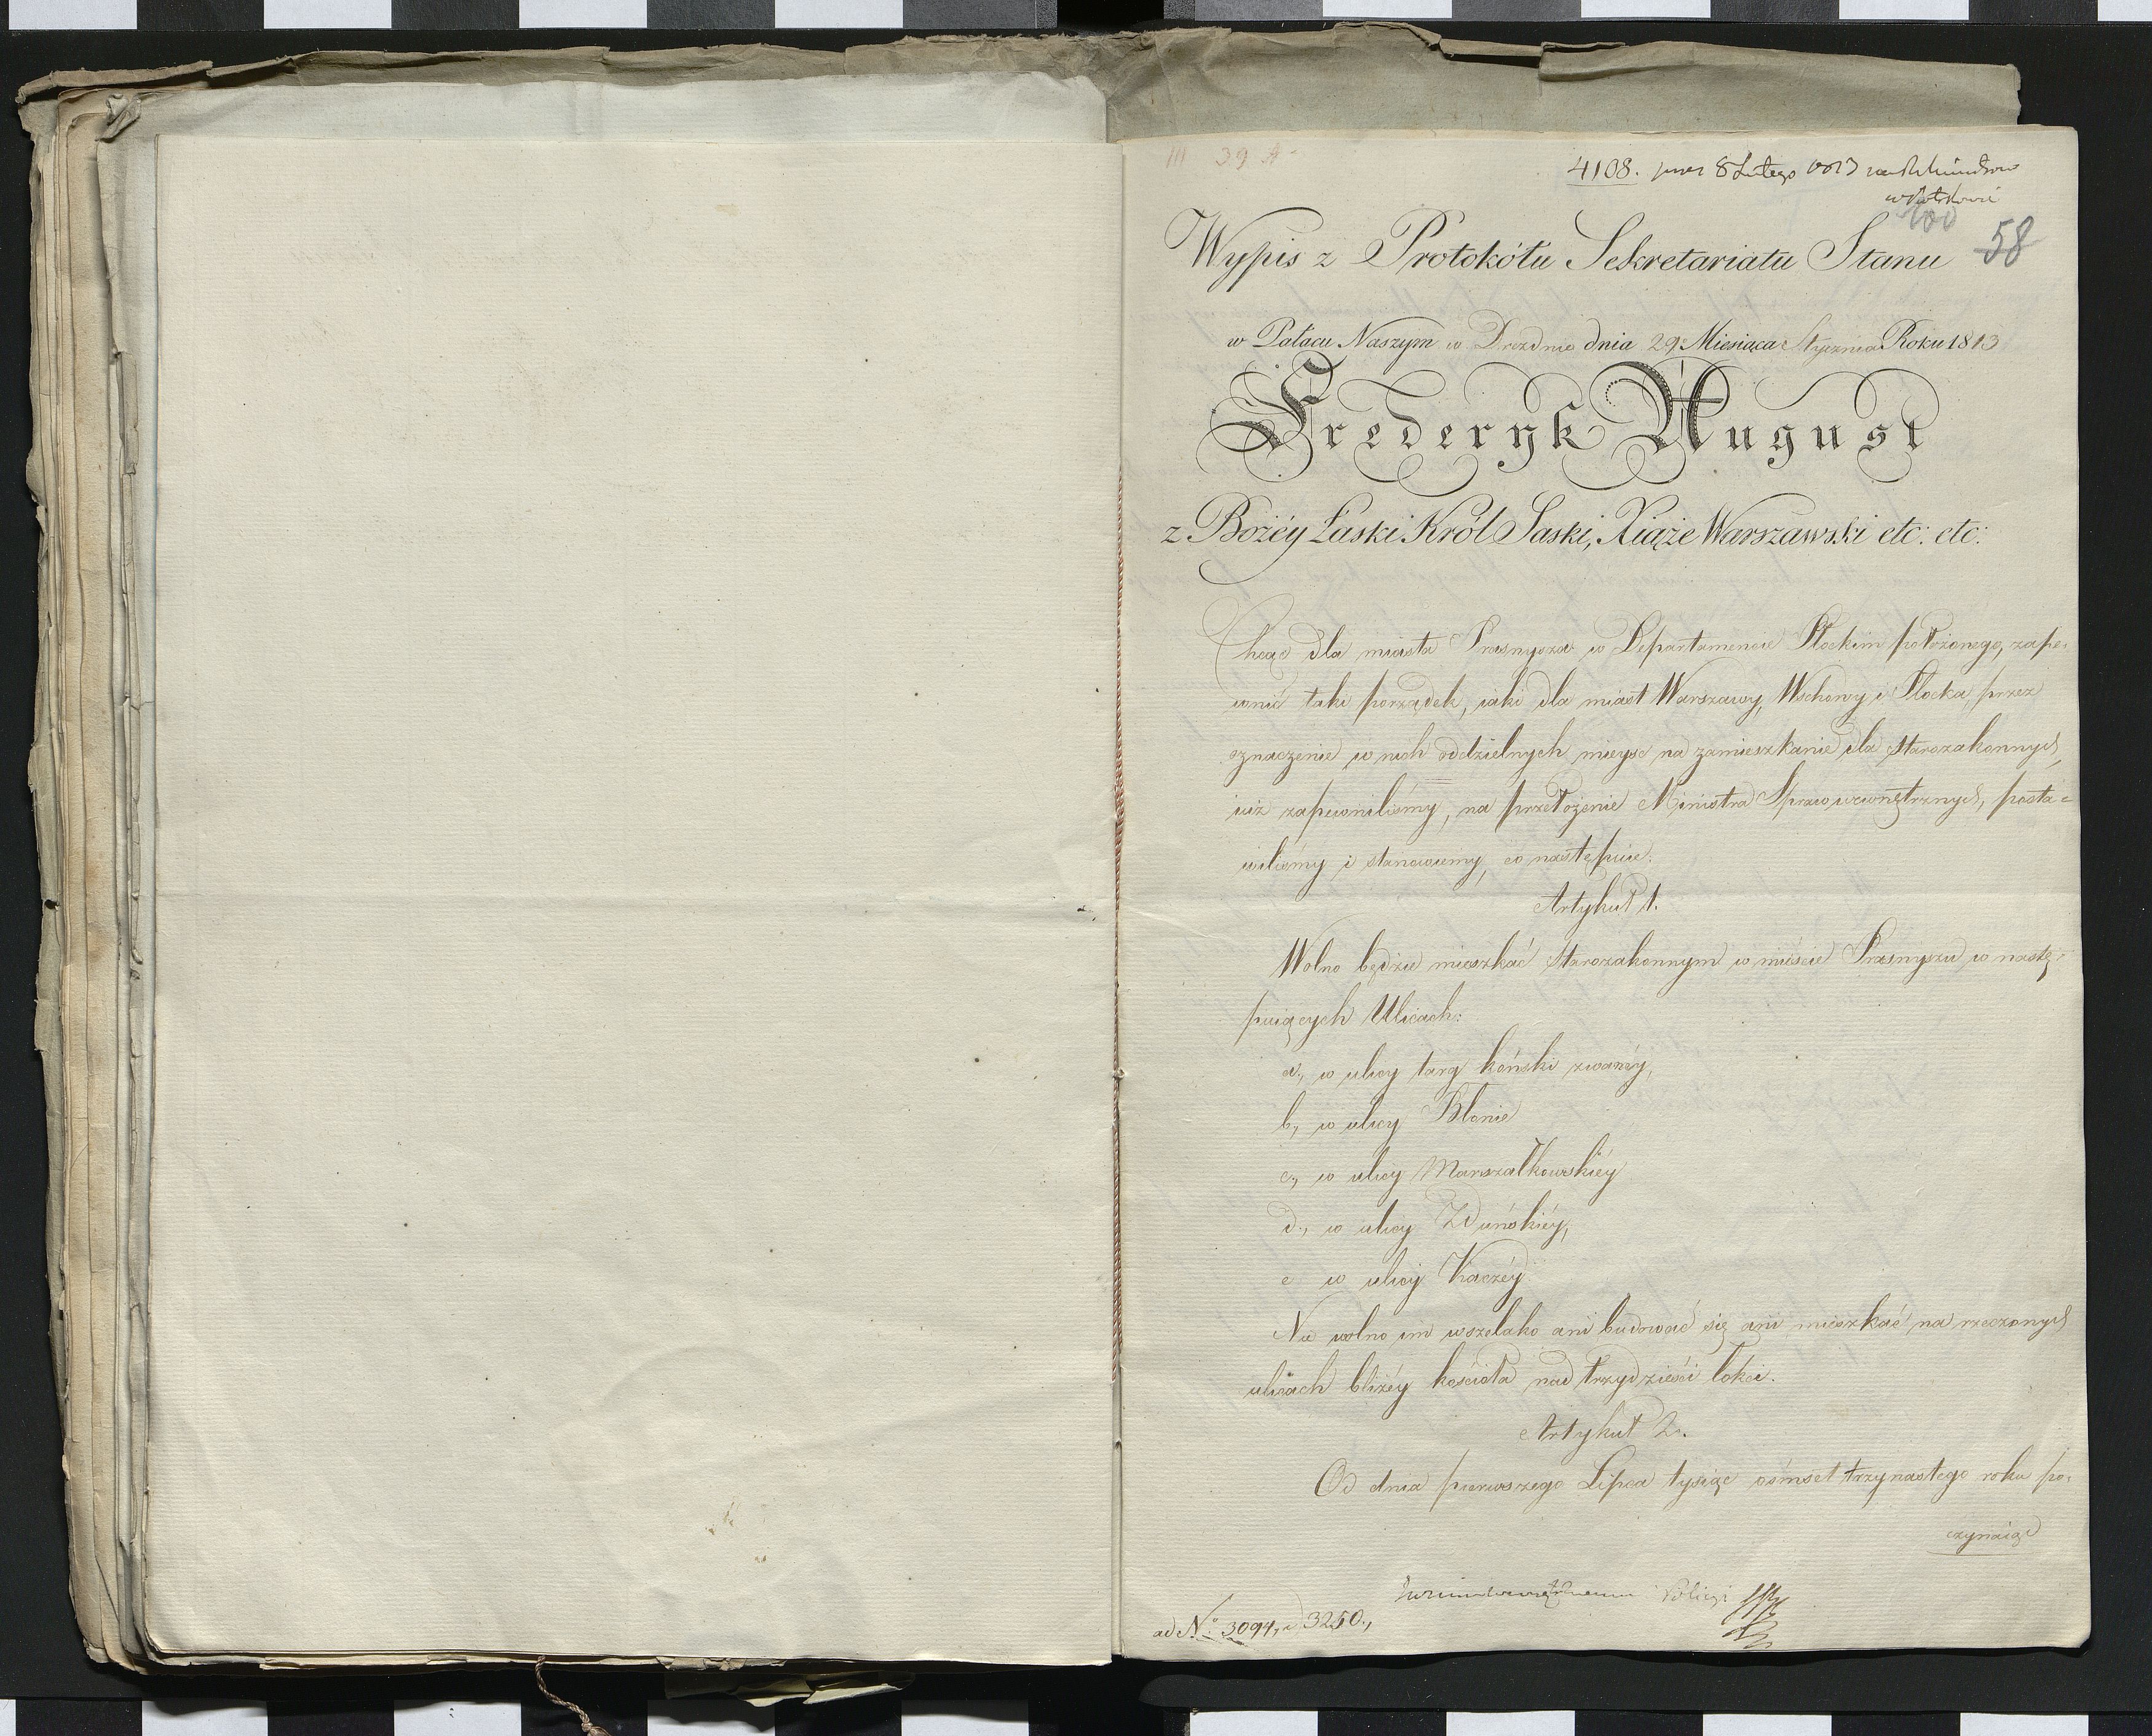 III 39 A
4108. pres 8 Lutego 1813
58
Wypis z Protokółu Sekretariatu Stanu
w Pałacu Naszym w Dreźnie dnia 29 Miesiąca Stycznia Roku 1813
Frederyk August
z Bożéy Łaski Król Saski, Xiąże Warszawski etc: etc:
Chcąc dla miasta Prasnysza w Departamencie Płockim położonego, zape-
wnić taki porządek, iaki dla miast Warszawy, Wschowy i Płocka, przez
oznaczenie w nich oddzielnych mieysc na zamieszkanie dla Starozakonnych,
iuż zapewniliśmy, na przełożenie Ministra Spraw wewnętrznych, posta=
wiliśmy i stanowimy, co następuie:
Artykuł 1.
Wolno będzie mieszkać Starozakonnym w mieście Prasnyszu w nastę-
puiących Ulicach:
a., w ulicy targ koński zwanéy,
b., w ulicy Błonie
c., w ulicy Marszałkowskiéy
d., w ulicy Zduńskiéy,
e w ulicy Kaczéy
Nie wolno im wszelako ani budować się ani mieszkać na rzeczonych
ulicach bliżéy kościoła nad trzydzieści łokci.
Artykuł 2.
Od dnia pierwszego Lipca tysiąc ośmset trzynastego roku po-
czynaiąc
Policyi
ad No: 3094, d 3250.,